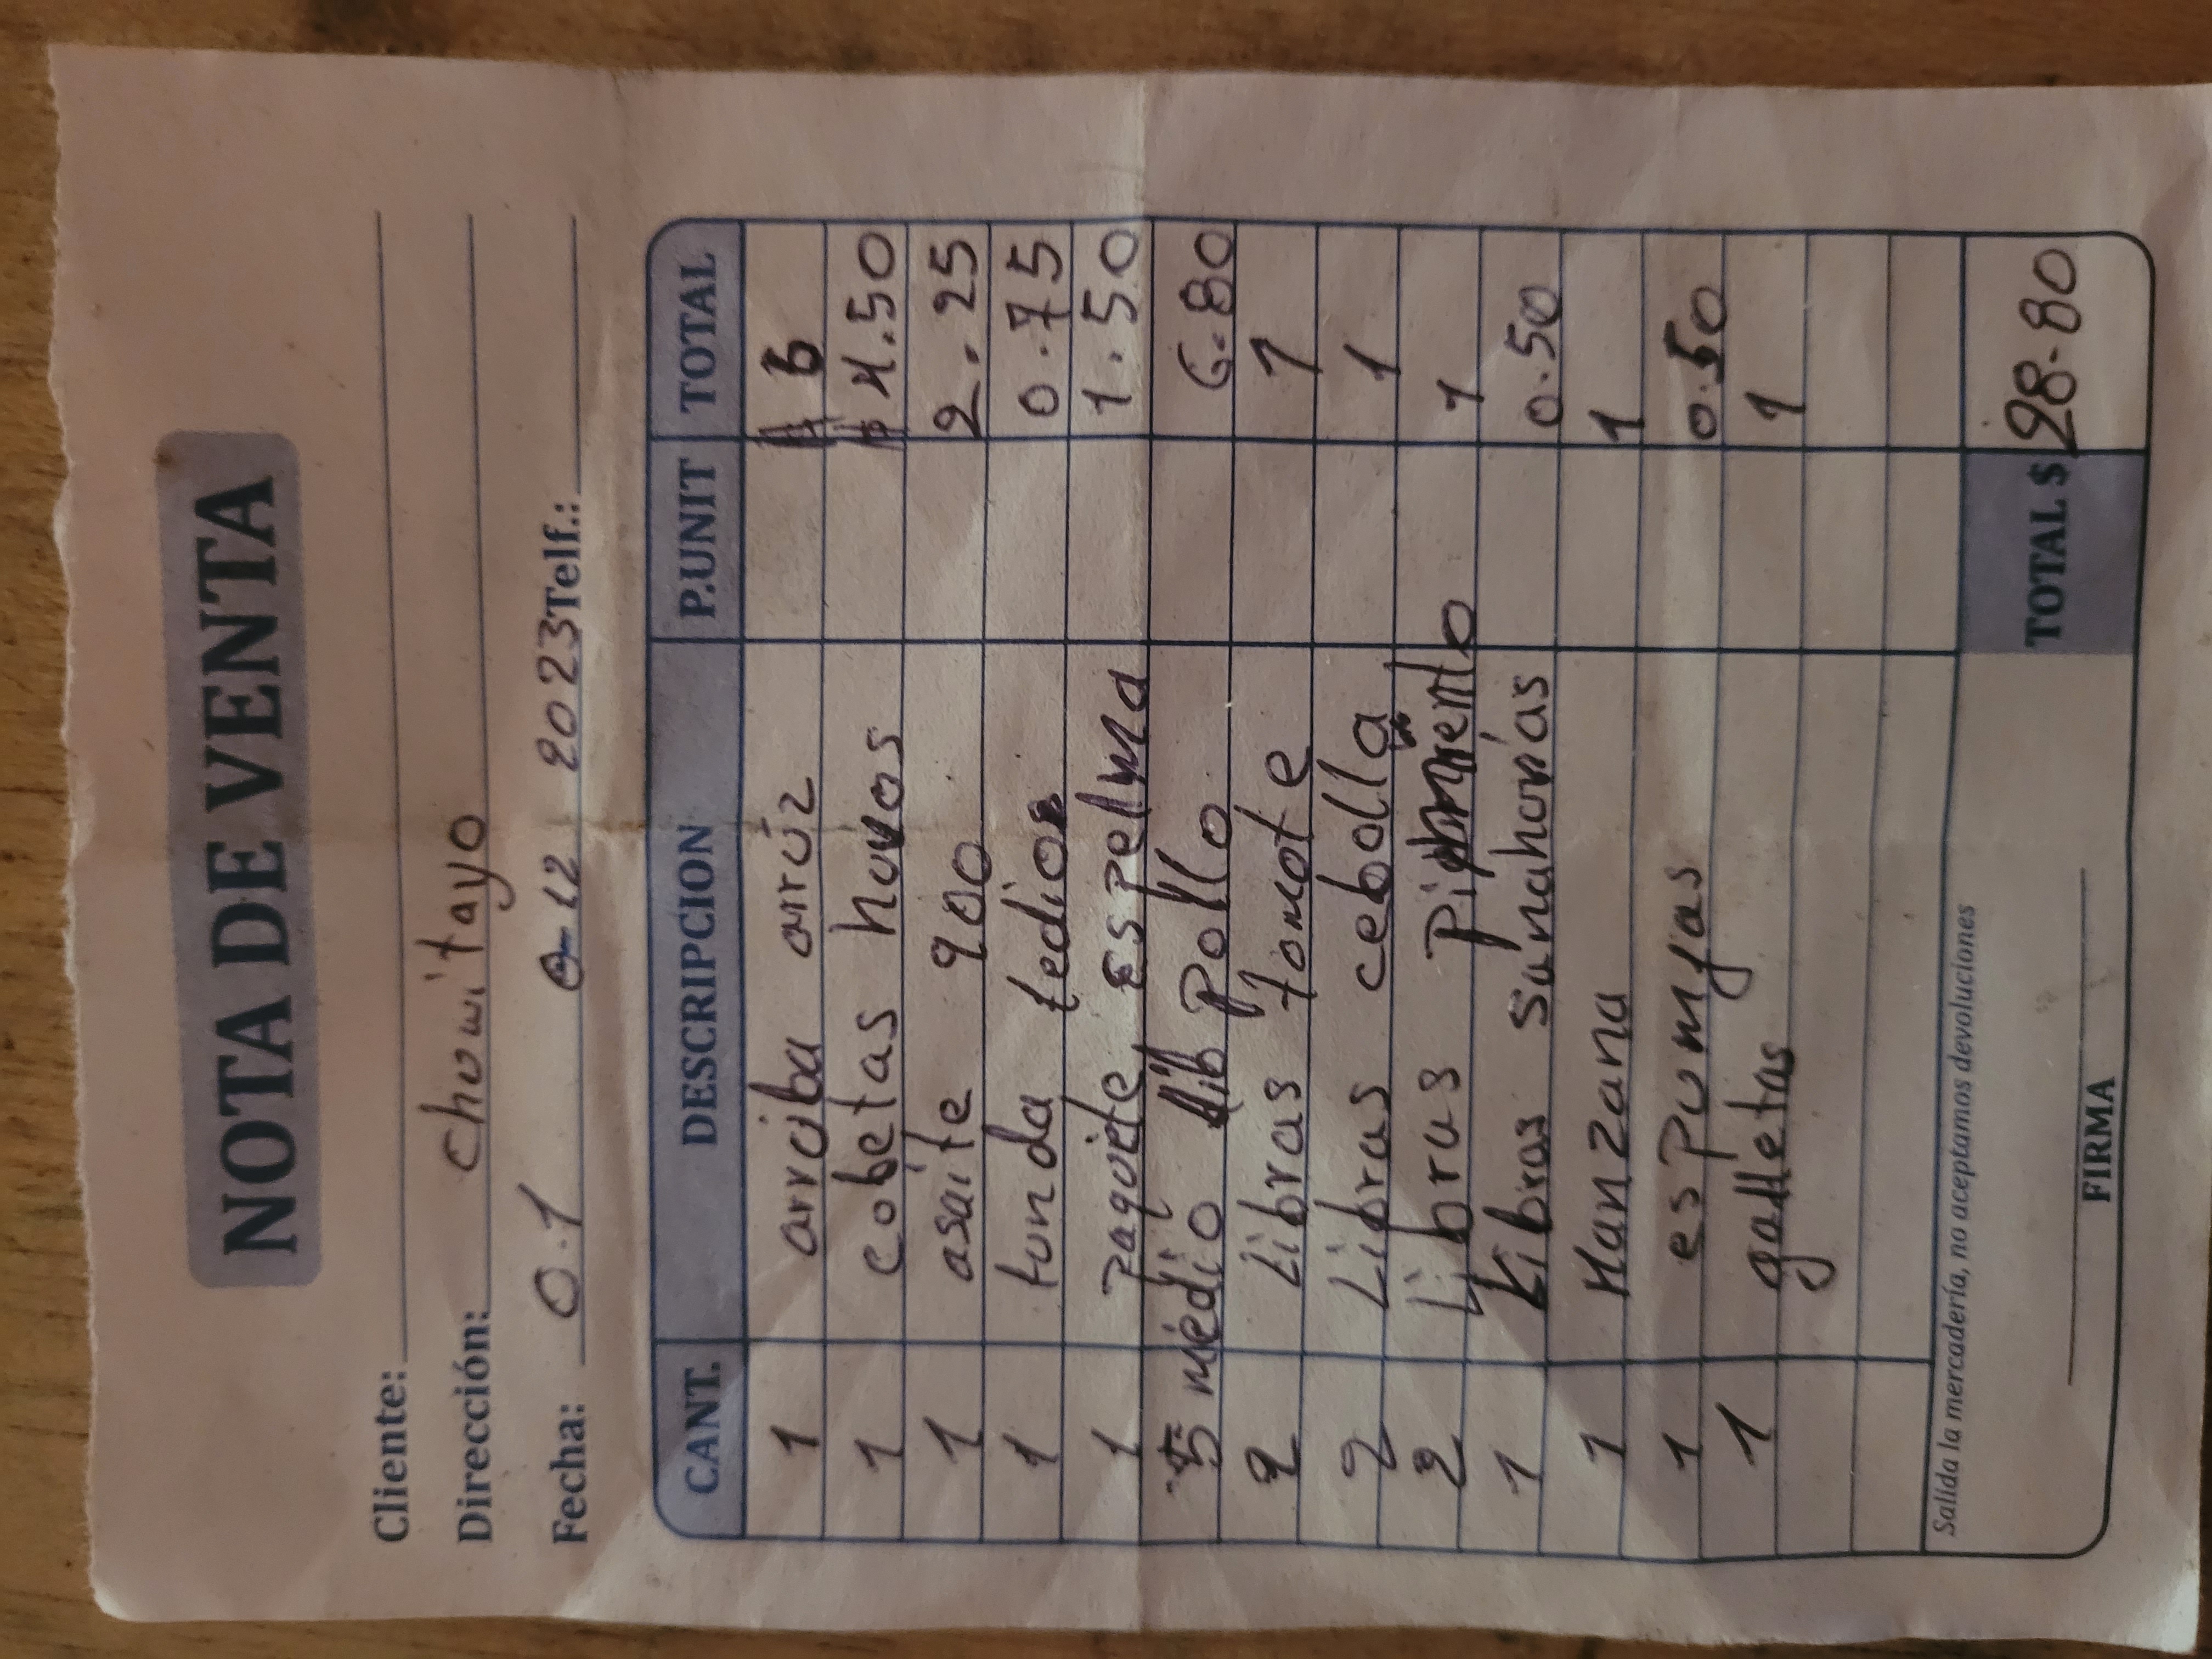 NOTA DE VENTA
Cliente:
Dirección: chuwitayo
Fecha: 0.1 12 2023 Telf.:
CANT. DESCRIPCION P.UNIT TOTAL
1 arroba arróz 6
1 cobetas huvos 4.50
1 asaite 900 2.25
1 funda fedios 0.75
1 paquete espelma 1.50
5 médio lib pollo 6.80
2 Libras tomate 1
2 Libras cebolla 1
2 Libras pipmiento 1
1 Libras sanahorías 0.50
1 Manzana 1
1 espumjas 0.50
1 galletas 1
Salida la mercadería, no aceptamos devoluciones
TOTAL $ 28.80
FIRMA